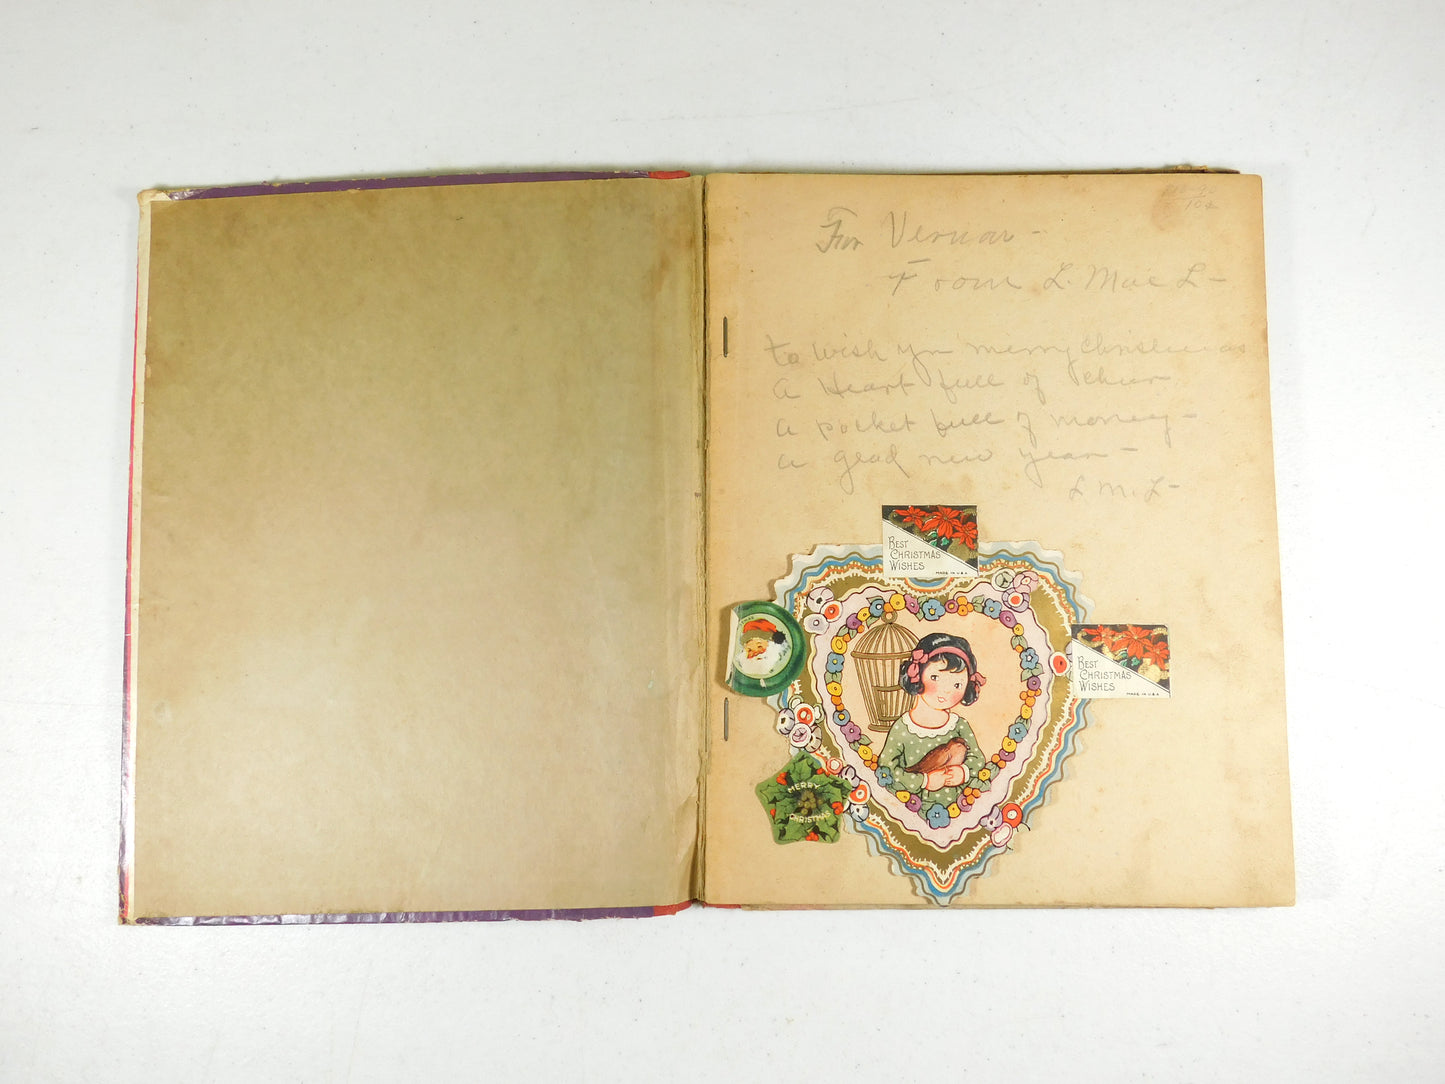 10¢
For Vernon -
From L. Mae L -
to wish you merry Christmas
a Heart full of cheer
a pocket full of money -
a glad new year -
L. M. L -
BEST
CHRISTMAS
WISHES
MADE IN U.S.A.
BEST
CHRISTMAS
WISHES
MADE IN U.S.A.
MERRY
CHRISTMAS